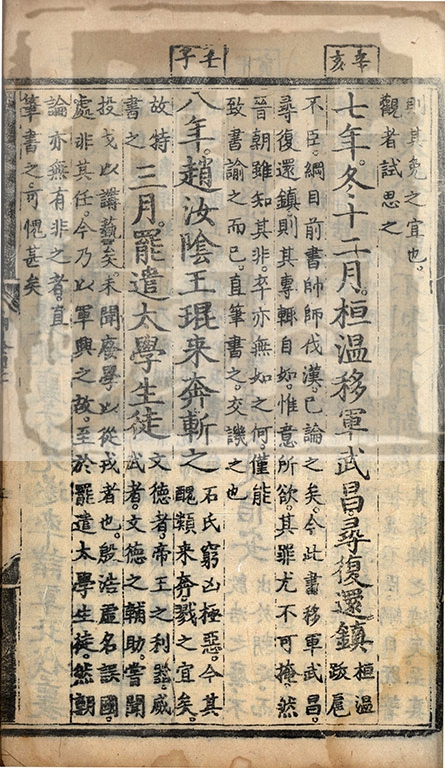 辛亥
壬子
則其免之宜也。
觀者試思之
七年。冬十二月。桓溫移軍武昌。尋復還鎮
桓溫
跋扈
不臣。綱目前書帥師伐漢。已論之矣。今此書移軍武昌。
尋復還鎮。則其專輒自如。惟意所欲。其罪尤不可掩。然
晉朝雖知其非。卒亦無如之何。僅能
致書諭之而已。直筆書之。交譏之也
八年。趙汝陰王琨来奔斬之
石氏窮凶極惡。今其
醜類来奔。戮之宜矣。
故特
書之
三月。罷遣太學生徒
文德者。帝王之利器。威
武者。文德之輔助。嘗聞
投戈以講藝矣。未聞廢學以從戎者也。殷浩虛名誤國。
處非其任。今乃以軍興之故。至於罷遣太學生徒。然朝
論亦無有非之者。直
筆書之。可懼甚矣